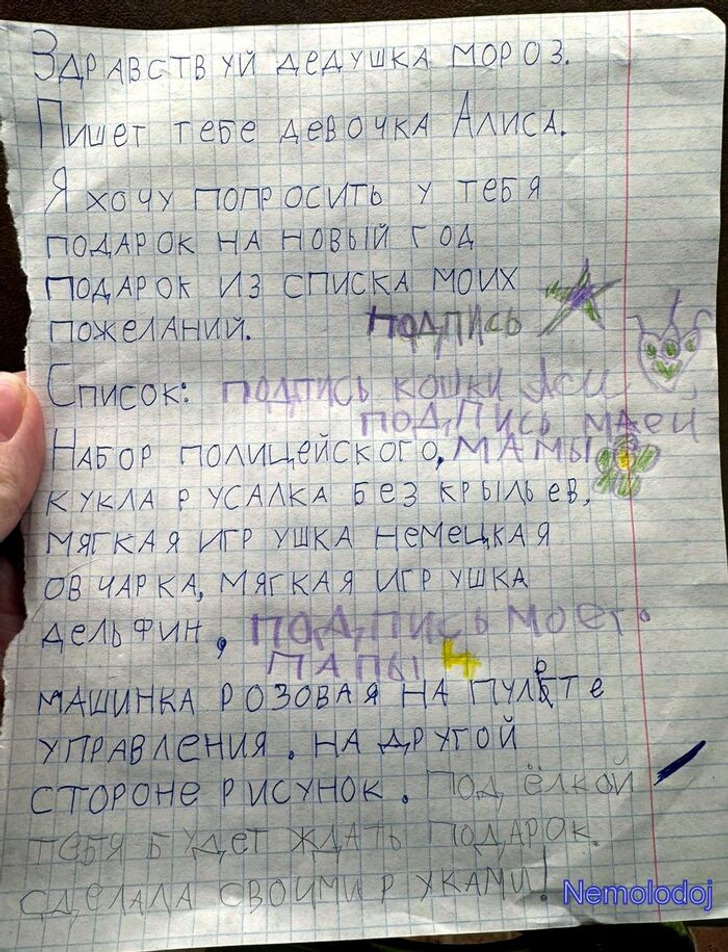 Здравствуй дедушка мороз.
Пишет тебе девочка Алиса.
Я хочу попросить у тебя
подарок на новый год
подарок из списка моих
пожеланий. подпись
Список: подпись кошки Аси
подпись маей
Набор полицейского, мамы
кукла русалка без крыльев,
мягкая игрушка немецкая
овчарка, мягкая игрушка
дельфин, подпись моего
папы
машинка розовая на пульте
управления. на другой
стороне рисунок. Под ёлкой
тебя будет ждать подарок.
сделала своими руками!
Nemolodoj